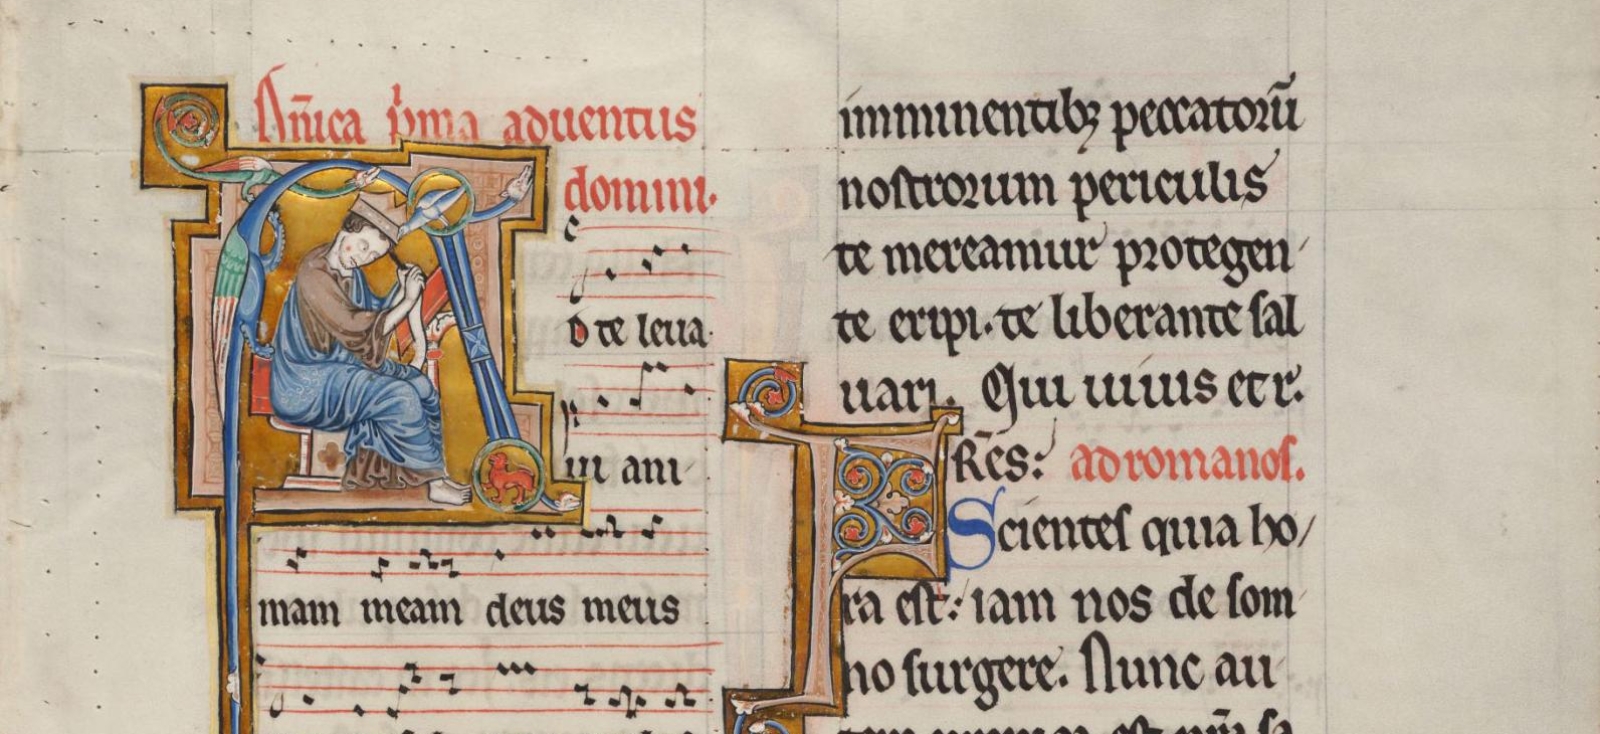 Dñica p̃ma aduentus
domini.
AD te leua
ui ani
mam meam deus meus
imminentibꝫ peccatorũ
nostrorum periculis
te mereamur protegen
te eripi. te liberante ſal
uari. Qui uiuis et r̃.
FRẽs: ad romanoſ.
Scienteſ quia ho/
ra eſt: iam nos de ſom
no ſurgere. Nunc au